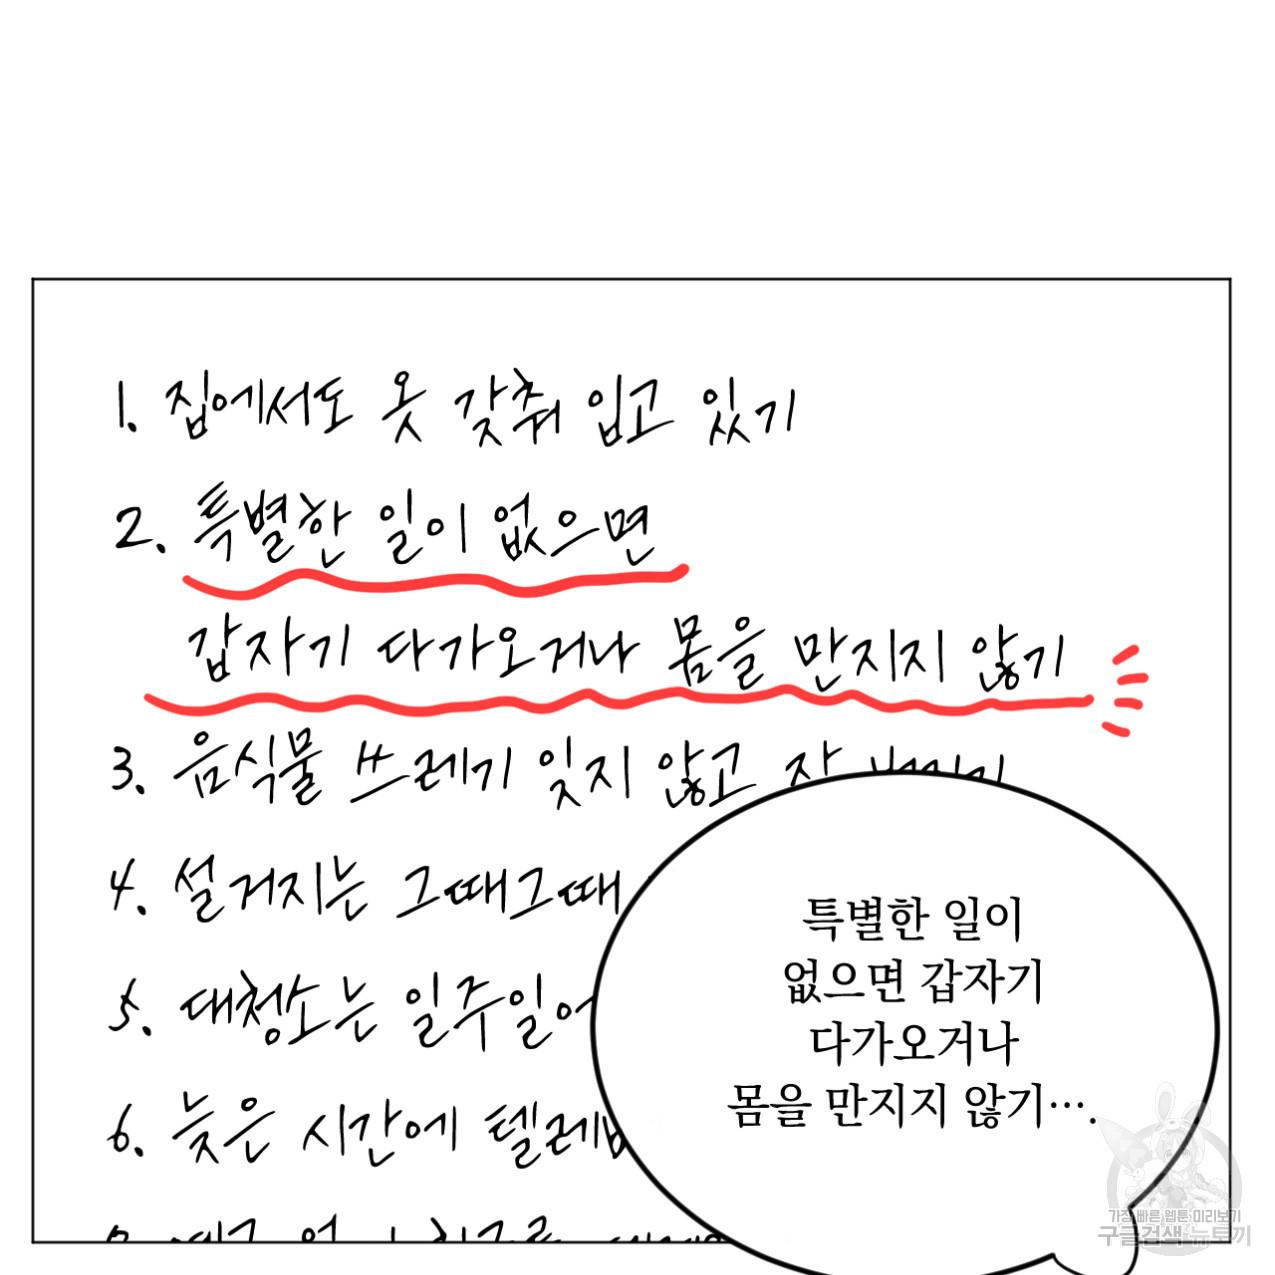 1. 집에서도 옷 갖춰 입고 있기
2. 특별한 일이 없으면
갑자기 다가오거나 몸을 만지지 않기
3. 음식물 쓰레기 잊지 않고 잘
4. 설거지는 그때그때
5. 대청소는 일주일에
6. 늦은 시간에 텔레
특별한 일이
없으면 갑자기
다가오거나
몸을 만지지 않기….
가장 빠른 웹툰 미리보기
구글검색 뉴토끼